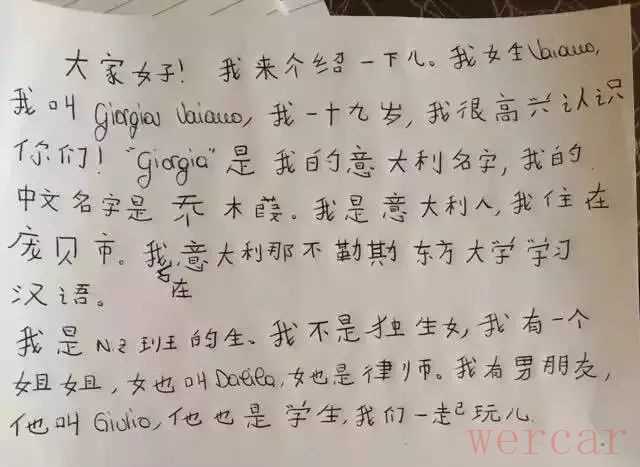 大家好！我来介绍一下儿。我姓Vaiano,
我叫 Giorgia Vaiano, 我一十九岁, 我很高兴认识
你们！"Giorgia"是我的意大利名字, 我的
中文名字是乔木葭。我是意大利人, 我住在
庞贝市。我在意大利那不勒斯东方大学学习
汉语。
我是 N.2 班的生、我不是独生女, 我有一个
姐姐, 她叫Dalila, 她也是律师。我有男朋友,
他叫 Giulio, 他也是学生, 我们一起玩儿.
wercar